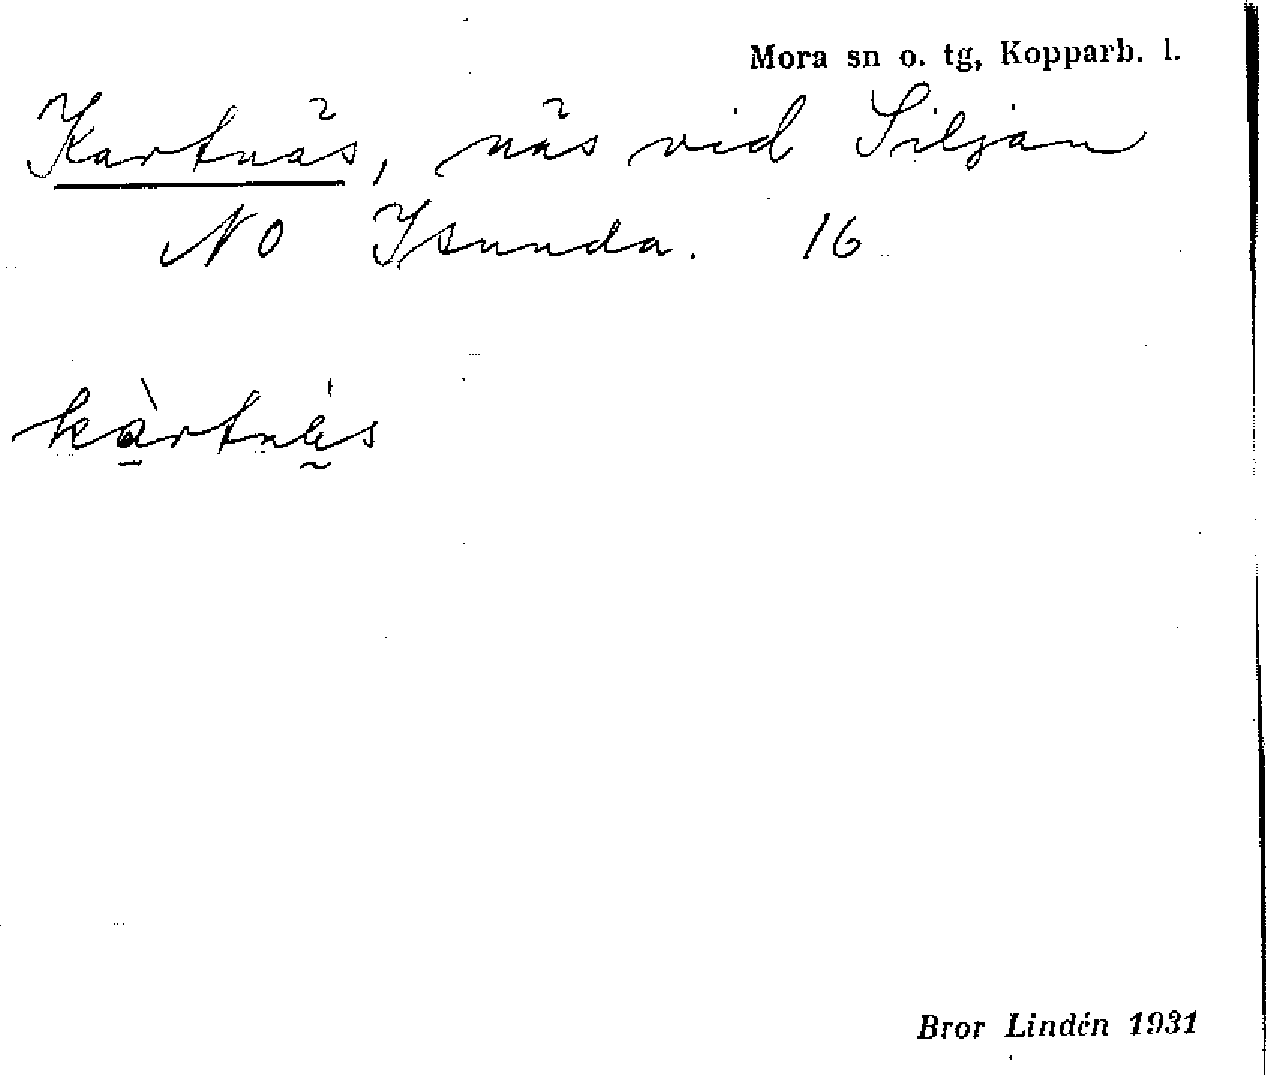 Mora sn o. tg, Kopparb. l.
Kartnäs, näs vid Siljan
NO Isunda. 16
kàrtnés
Bror Lindén 1931